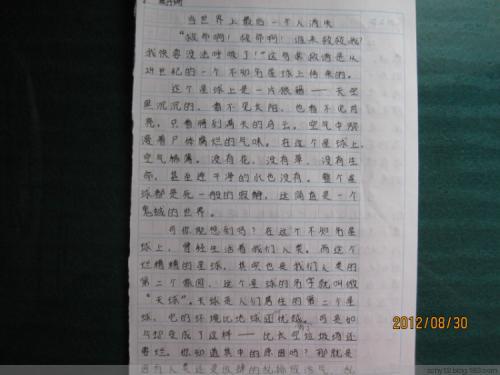 当世界上最后一个人消失
"救命啊！救命啊！谁来救救我！
我快要没法呼吸了！"这句求救语是从
世纪的一个不知名星球上传来的。
这个星球上是一片狼籍——天空
黑沉沉的，看不见太阳，也看不见月
亮，只看得到满天的乌云。空气中弥
漫着尸体腐烂的气味。在这个星球上，
空气稀薄，没有花，没有草，没有生
命，甚至连干净的水也没有。整个星
球都是死一般的寂静，这简直是一个
鬼域的世界。
可你能想到吗？在这个不知名星
球上，曾经生活着我们人类。而这个
烂糟糟的星球，其实也是我们人类的
第二个家园。这个星球的名字就叫做
"天球"。天球是人们居住的第二个星
球，它的环境比地球还优越。可是如
今却变成了这样——比太空垃圾场还
要烂。你知道其中的原因吗？那就是
因为人类还是这样的乱排废气，乱
2012/08/30